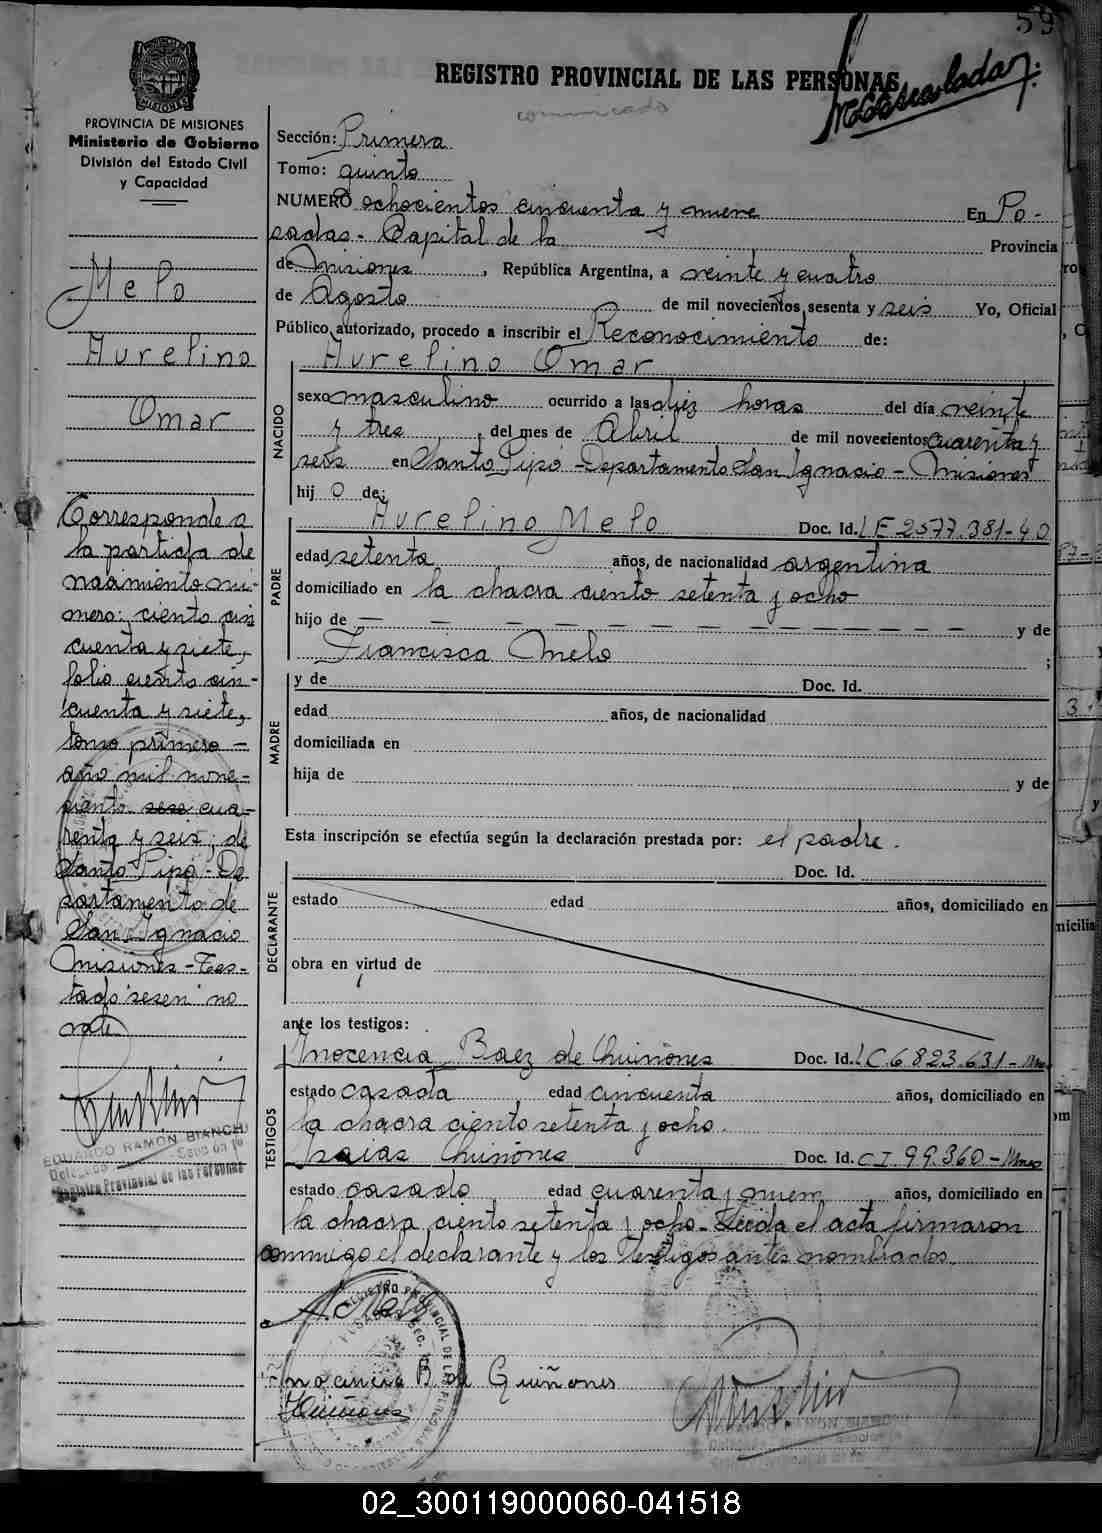 59
REGISTRO PROVINCIAL DE LAS PERSONAS
comunicado
PROVINCIA DE MISIONES
Ministerio de Gobierno
División del Estado Civil
y Capacidad
Melo
Aurelino
Omar
Corresponde a
la partida de
nacimiento nú-
mero: ciento cin
cuenta y siete,
folio ciento cin-
cuenta y siete,
tomo primero -
año mil nove-
ciento sese cua-
renta y seis; de
Santo Pipó - De
partamento de
San Ignacio
Misiones - Tes-
tado "sesen" no
vale
EDUARDO RAMON BIANCHI
Registro Provincial de las Personas
Sección: Primera
Tomo: quinto
NUMERO ochocientos cincuenta y nueve En Po-
sadas - Capital de la Provincia
de Misiones, República Argentina, a veinte y cuatro
de Agosto de mil novecientos sesenta y seis Yo, Oficial
Público autorizado, procedo a inscribir el Reconocimiento de:
NACIDO
Aurelino Omar
sexo masculino ocurrido a las diez horas del día veinte
y tres, del mes de Abril de mil novecientos cuarenta y
seis en Santo Pipó - Departamento San Ignacio - Misiones
hij o de:
PADRE
Aurelino Melo Doc. Id. L E 2577.381-40
edad setenta años, de nacionalidad argentina
domiciliado en la chacra ciento setenta y ocho
hijo de — — — — — — — — — — y de
Francisca Melo ;
MADRE
y de Doc. Id.
edad años, de nacionalidad
domiciliada en
hija de y de
Esta inscripción se efectúa según la declaración prestada por: el padre.
DECLARANTE
Doc. Id.
estado edad años, domiciliado en
obra en virtud de
ante los testigos:
TESTIGOS
Inocencia Baez de Quiñones Doc. Id. L C. 6823.631 - Mnes
estado casada, edad cincuenta años, domiciliado en
la chacra ciento setenta y ocho.
Isaias Quiñones Doc. Id. C I. 99.360 - Mnes
estado casado, edad cuarenta y nueve, años, domiciliado en
la chacra ciento setenta y ocho - Leída el acta firmaron
conmigo el declarante y los testigos antes nombrados.
A. Melo
Inocencia B. de Quiñones
Quiñones
02_300119000060-041518